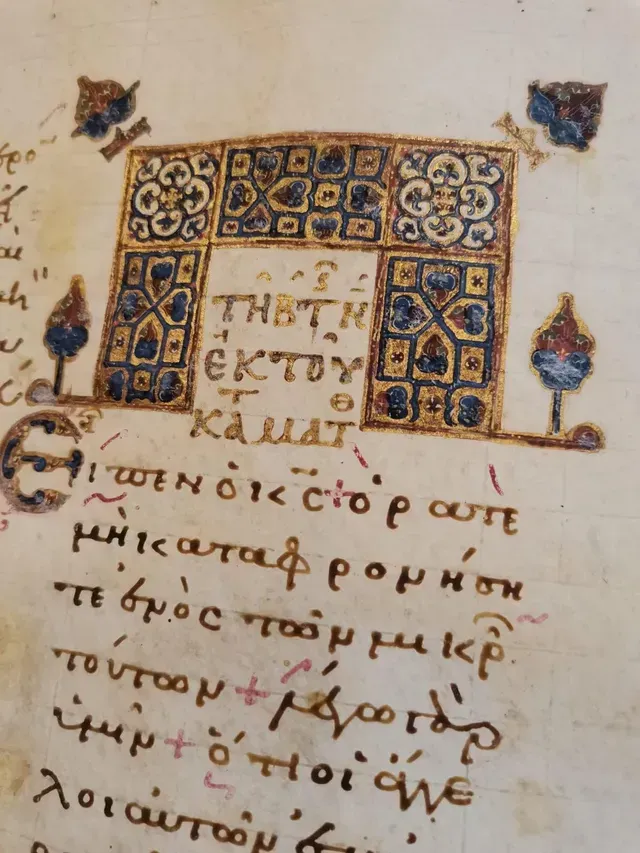 ΤΗ Β Τ Ν
ΕΚ ΤΟΥ
ΚΑΤ ΜΑΤΘ
Εἶπεν ὁ κς + ὁρᾶτε
μὴ καταφρονήση
τε ἑνὸς τῶν μικρ
τούτων + λέγω γὰρ
ὑμῖν + ὅτι οἱ ἄγγε
λοι αὐτῶν ἐν